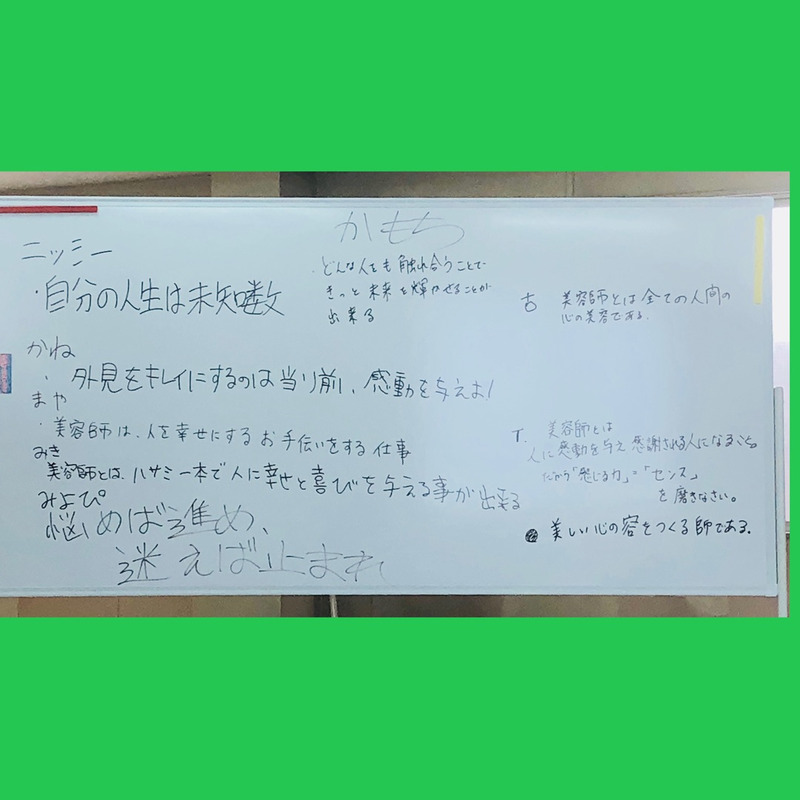 ニッシー
・自分の人生は未知数
かもち
・どんな人をも触れ合うことで
きっと未来を輝かせることが
出来る
かね
・外見をキレイにするのは当り前!、感動を与えよ!
まや
・美容師は、人を幸せにするお手伝いをする仕事
みき
美容師とは、ハサミ一本で人に幸せと喜びを与える事が出来る
みよぴ
悩めば進め、
迷えば止まれ
古 美容師とは全ての人間の
心の美容である。
T. 美容師とは
人に感動を与え感謝される人になること。
だから「感じる力」=「センス」
を磨きなさい。
美しい心の容をつくる師である。